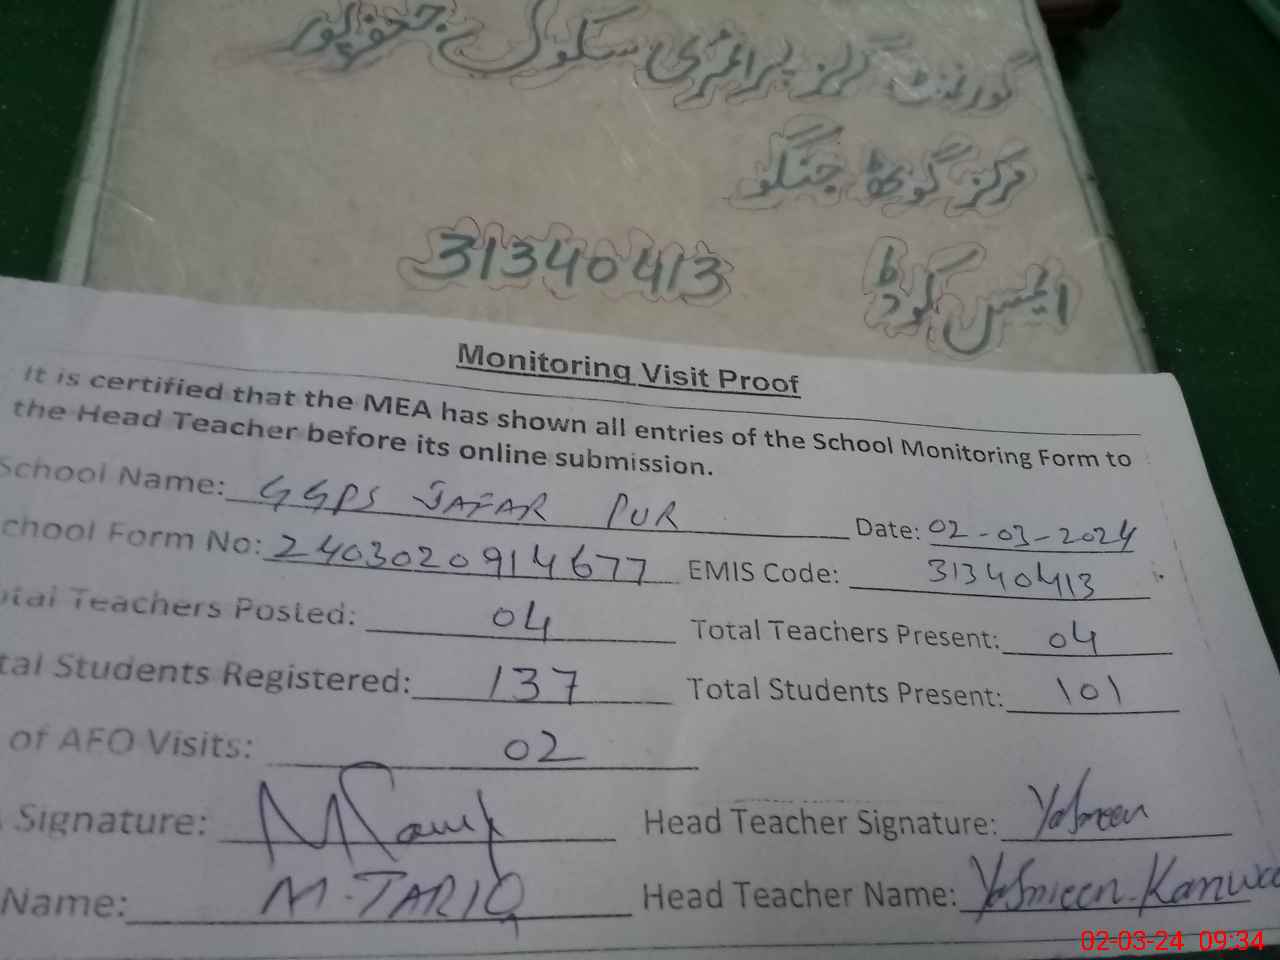 گورنمنٹ گرلز پرائمری سکول جعفر پور
مرکز گوٹھ جنگو
ایمس کوڈ 31340413
Monitoring Visit Proof
It is certified that the MEA has shown all entries of the School Monitoring Form to
the Head Teacher before its online submission.
School Name: GGPS JAFAR PUR Date: 02-03-2024
chool Form No: 2403020914677 EMIS Code: 31340413
tal Teachers Posted: 04 Total Teachers Present: 04
tal Students Registered: 137 Total Students Present: 101
of AEO Visits: 02
Signature: Head Teacher Signature: Yasmeen
Name: M. TARIQ Head Teacher Name: Yasmeen Kanwa
02-03-24 09:34